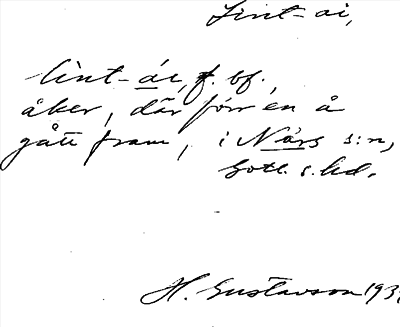 Lint-ai,
lint-ái, f. bf.,
åker, där förr en å
gått fram, i När s:n,
Gotl. s. hd.
H. Gustavson 193